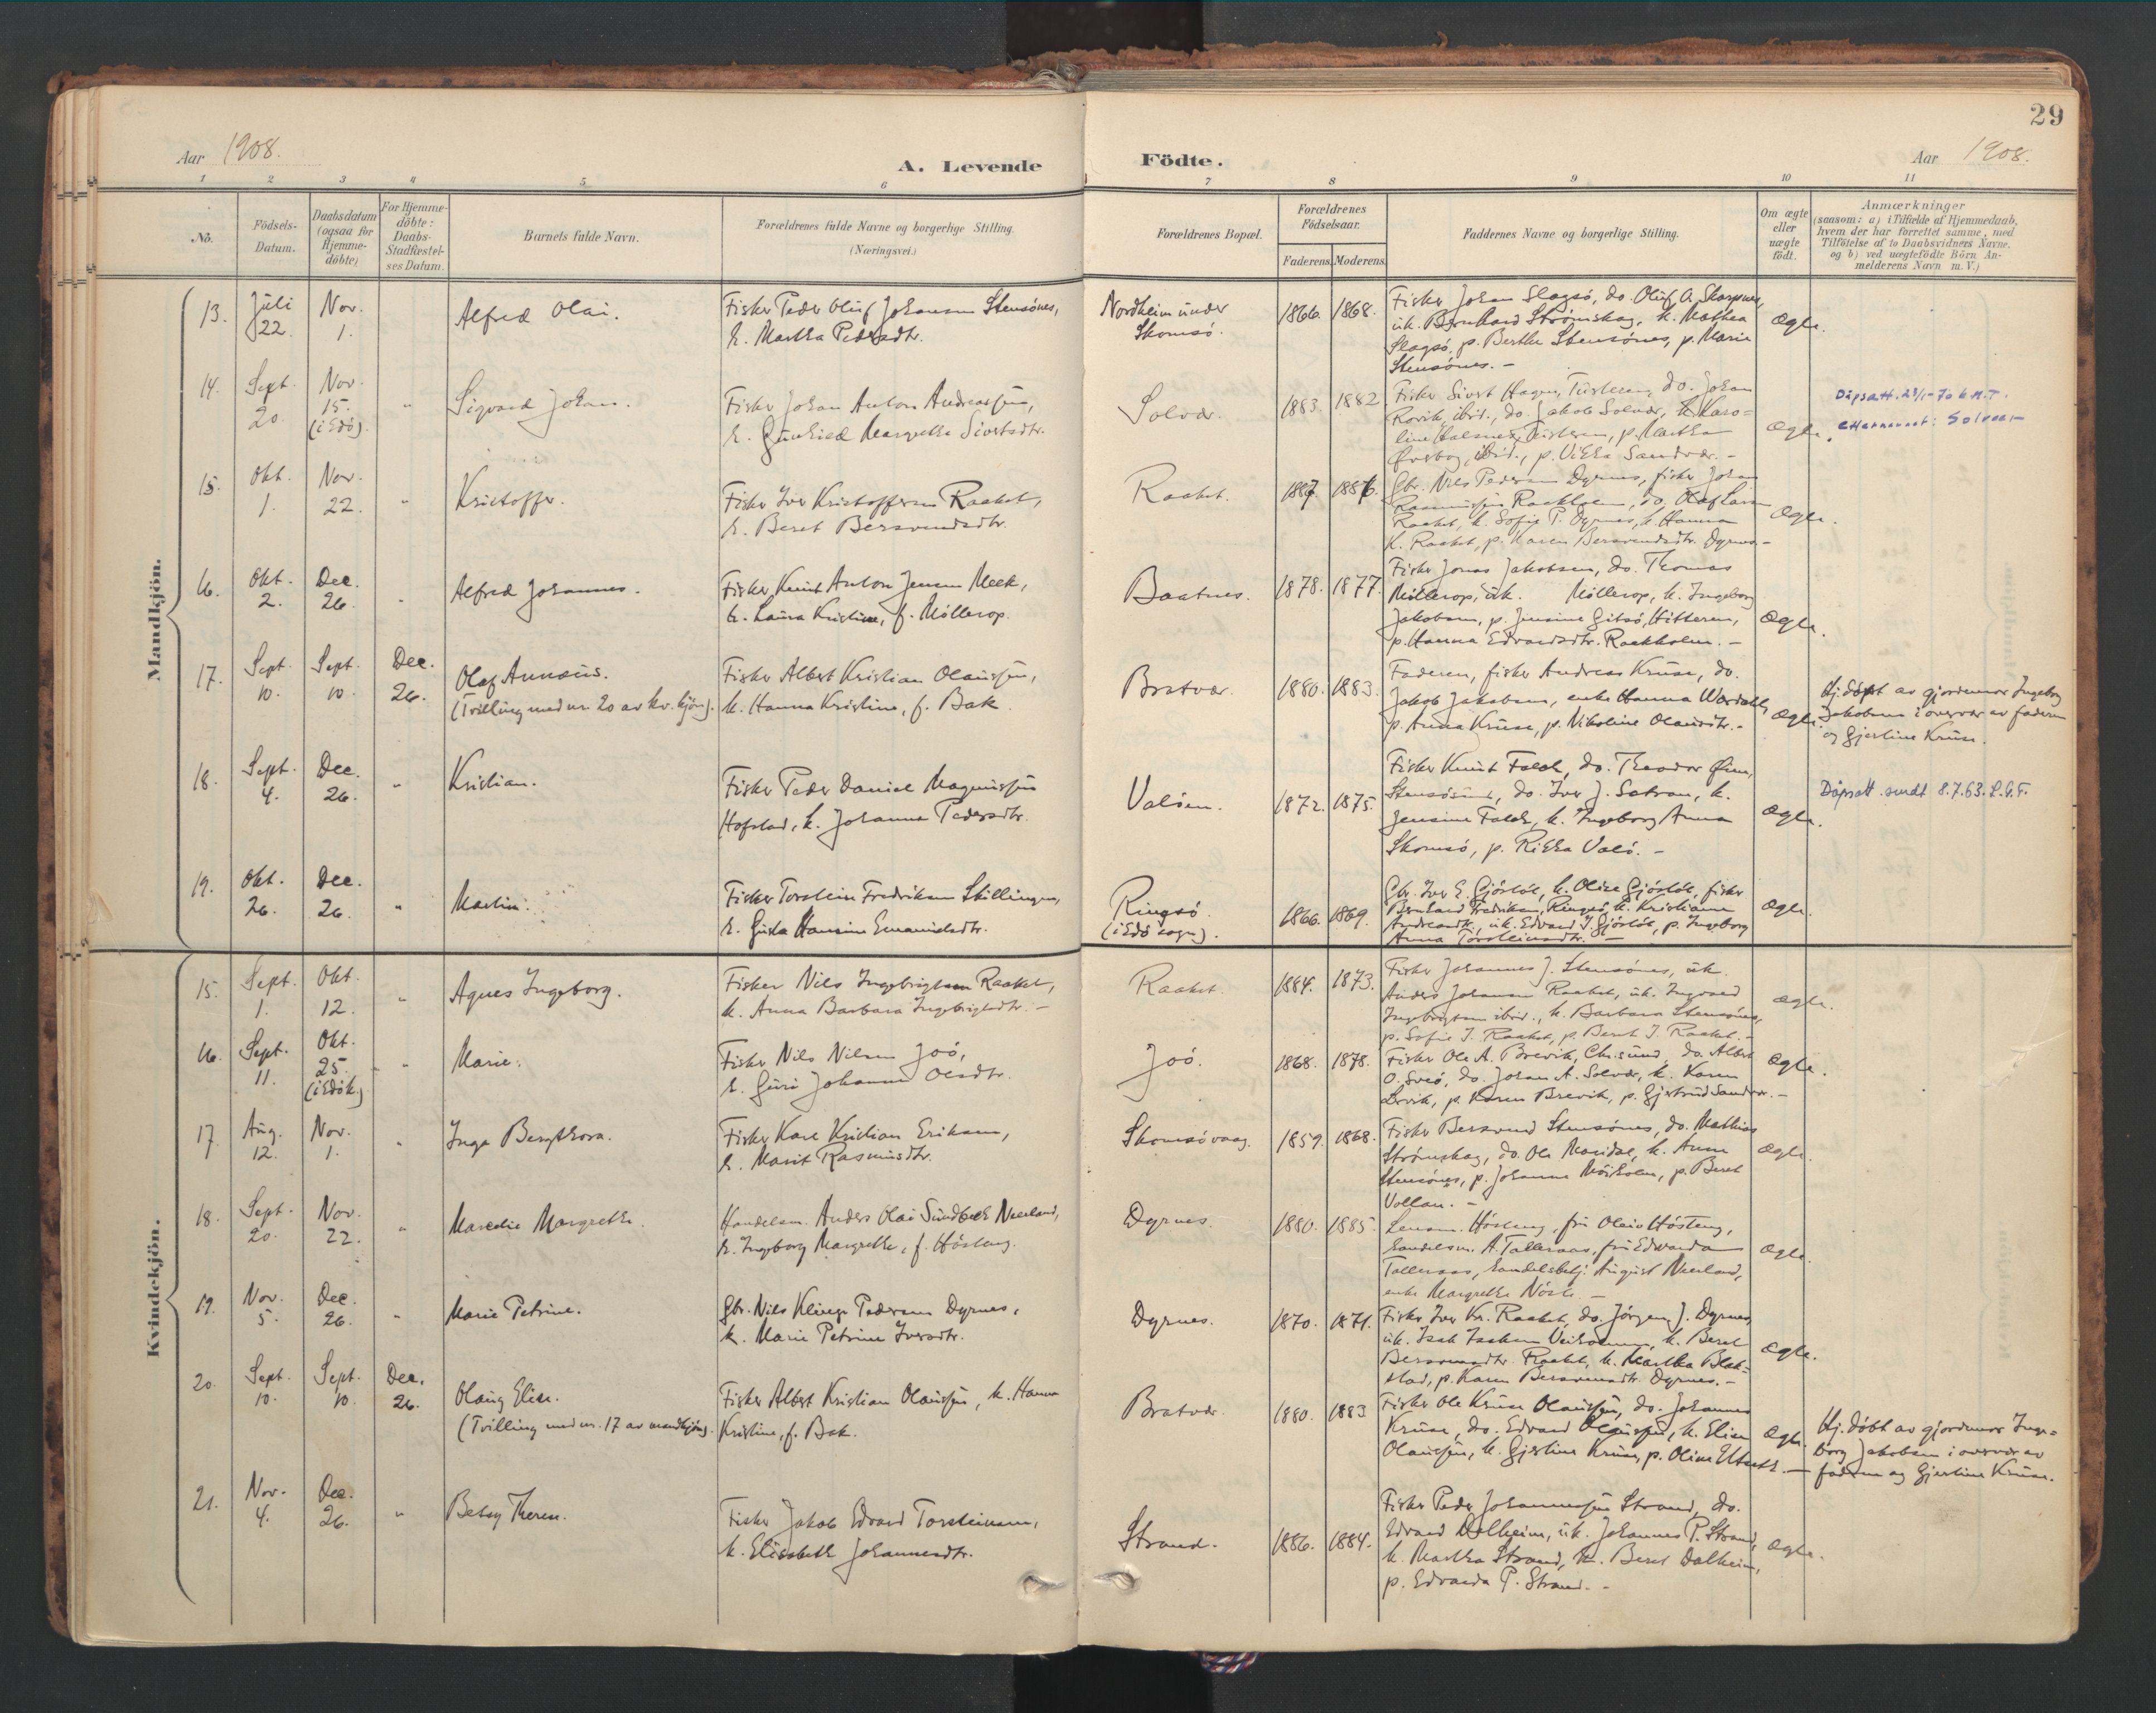 29
Aar 1908.
A. Levende
Födte.
Aar 1908.
1 2 3 4 5 6 7 8 9 10 11
No.
Födsels-Datum.
Daabsdatum (ogsaa for Hjemme-döbte)
For Hjemme-döbte: Daabs-Stadfæstel-ses Datum.
Barnets fulde Navn.
Forældrenes fulde Navne og borgerlige Stilling. (Næringsvei.)
Forældrenes Bopæl.
Forældrenes Födselsaar.
Faderens. Moderens.
Faddernes Navne og borgerlige Stilling.
Om ægte eller uægte født.
Anmærkninger
(saasom: a) i Tilfælde af Hjemmedaab,
hvem der har forrettet samme, med
Tilföielse af to Daabsvidners Navne.
og b) ved uægtefödte Börn An-
melderens Navn m. V.)
Mandkjön.
13. Juli 22. Nov. 1. Alfred Olai.
Fisker Peder Oluf Johansen Stensönes,
h. Martha Pedersdtr.
Nordheim under Skomsö. 1866. 1868.
Fisker Johan Slagsö, do. Oluf A.
uk. Bernhard Strömskag, k. Mathea
Slagsö, p. Berthe Stensönes, p. Marie
Stensönes. -
Ægte.
14. Sept. 20. Nov. 15. (i Edö). " Sigvard Johan.
Fisker Johan Anton Andreassen,
h. Gunhild Margrethe Sivertsdtr.
Solvær. 1883. 1882
Fisker Sivert Hagen, Tusteren, do. Johan
Rovik, ibid., do. Jakob Solvær, k. Karo-
line Tusteren, p. Martha
ibid., p. Vikka Sandvær. -
Ægte.
Dåpsatt. 23/1-70
Etternavnet: Solvær
15. Okt. 1. Nov. 22. " Kristoffer.
Fisker Iver Kristoffersen Raaket,
h. Beret Bersvendsdtr.
Raaket. 1887. 1886.
Gbr. Nils Pedersen Dyrnes, fisker Johan
Rasmussen Raakholm, do. Olaf Larsen
Raaket, k. Sofie P. Dyrnes, k. Hanna
K. Raaket, p. Karen Bersvendsdtr. Dyrnes. -
Ægte.
16. Okt. 2. Dec. 26. " Alfred Johannes.
Fisker Knut Anton Jensen Meek,
h. Laura Kristine, f. Möllerop.
Baatnes. 1878. 1877.
Fisker Jonas Jakobsen, do. Thomas
Möllerop, uk. Möllerop, k. Ingeborg
Jakobsen, p. Jensine Gitsö, Hitteren,
p. Hanna Edvardsdtr. Raakholm. -
Ægte.
17. Sept. 10. Sept. 10. Dec. 26. Olaf Annæus.
(Tvilling med nr. 20 av kv. kjön).
Fisker Albert Kristian Olaussen,
h. Hanna Kristine, f. Bak.
Bratvær. 1880. 1883.
Faderen, fisker Andreas Kruse, do.
Jakob Jakobsen, enke Hanna Werdahl,
p. Anna Kruse, p. Nikoline Olausdtr. -
Ægte.
Hj. döpt av gjordemor Ingeborg
Jakobsen i overvær av faderen
og Gjertine Kruse.
18. Sept. 4. Dec. 26. " Kristian.
Fisker Peder Daniel Magnussen
Hofstad, h. Johanna Pedersdtr.
Valöen. 1872. 1875.
Fisker Knut Falch, do. Theodor
Stensösund, do. Iver J. Sætran, k.
Jensine Falch, k. Ingeborg Anna
Skomsö, p. Rikka Valö. -
Ægte.
Dåpsatt. sendt 8.7.63.
19. Okt. 26. Dec. 26. " Martin.
Fisker Torstein Fredriksen Skillingen,
h. Gusta Hansine Emanuelsdtr.
Ringsö. (i Edö sogn). 1866. 1869.
Gbr. Iver E. Gjöstöl, k. Olise Gjöstöl, fisker
Bernhard Fredriksen, Ringsö, k. Kristianne
Andreasdtr., uk. Edvard I. Gjöstöl, p. Ingeborg
Anna Torsteinsdtr. -
Ægte.
Kvindekjön.
15. Sept. 1. Okt. 12. " Agnes Ingeborg.
Fisker Nils Ingebrigtsen Raaket,
h. Anna Barbara Ingebrigtsdtr. -
Raaket. 1884. 1873.
Fisker Johannes J. Stensönes, uk.
Anders Johansen Raaket, uk. Ingvard
Ingebrigtsen ibid., k. Barbara Stensönes,
p. Sofie I. Raaket, p. Beret I. Raaket. -
Ægte.
16. Sept. 11. Okt. 25. (i Edök.) " Marie.
Fisker Nils Nilsen Joö,
h. Guri Johanne Olsdtr.
Joö. 1868. 1878.
Fisker Ole A. Brevik, Chr.sund, do. Albert
O. Sveö, do. Johan A. Solvær, k. Karen
p. Karen Brevik, p. Gjertrud Sandvær. -
Ægte.
17. Aug. 12. Nov. 1. " Inga Bergthora.
Fisker Karl Kristian Eriksen,
h. Marit Rasmusdtr.
Skomsövaag. 1859. 1868.
Fisker Bersvend Stensönes, do. Mathias
Strömskag, do. Ole Mandal, k. Anne
Stensönes, p. Johanna p. Beret
Vollan. -
Ægte.
18. Sept. 20. Nov. 22. " Margrethe.
Handelsm. Anders Olai Sundbeck Neerland,
h. Ingeborg Margrethe, f. Hösteng.
Dyrnes. 1880. 1885.
Lensm. Hösteng, fru Olava Hösteng,
handelsm. A. Talleraas, fru Edvarda
Talleraas, handelsbetj. August Neerland,
enke Margrethe
Ægte.
19. Nov. 5. Dec. 26. " Marie Petrine.
Gbr. Nils Klinge Pedersen Dyrnes,
h. Marie Petrine Iversdtr.
Dyrnes. 1870. 1871.
Fisker Iver Kr. Raaket, do. Jörgen J. Dyrnes,
uk. Isak Isaksen Veiholmen, k. Beret
Bersvendsdtr. Raaket, k. Martha Blak-
stad, p. Karen Bersvendsdtr. Dyrnes. -
Ægte.
20. Sept. 10. Sept. 10. Dec. 26. Olaug Elise.
(Tvilling med nr. 17 av mandkjön).
Fisker Albert Kristian Olaussen, h. Hanna
Kristine, f. Bak.
Bratvær. 1880. 1883
Fisker Ole Kruse Olaussen, do. Johannes
Kruse, do. Edvard Olaussen, k. Elise
Olaussen, k. Gjertine Kruse, p. Oline -
Ægte.
Hj. döbt av gjordemor Inge-
borg Jakobsen i overvær av
faderen og Gjertine Kruse.
21. Nov. 4. Dec. 26. " Betsy Therese.
Fisker Jakob Edvard Torsteinsen,
h. Elisabeth Johannesdtr.
Strand. 1886. 1884.
Fisker Peder Johannessen Strand, do.
Edvard Dalheim, uk. Johannes P. Strand,
k. Martha Strand, k. Beret Dalheim,
p. Edvarda P. Strand. -
Ægte.